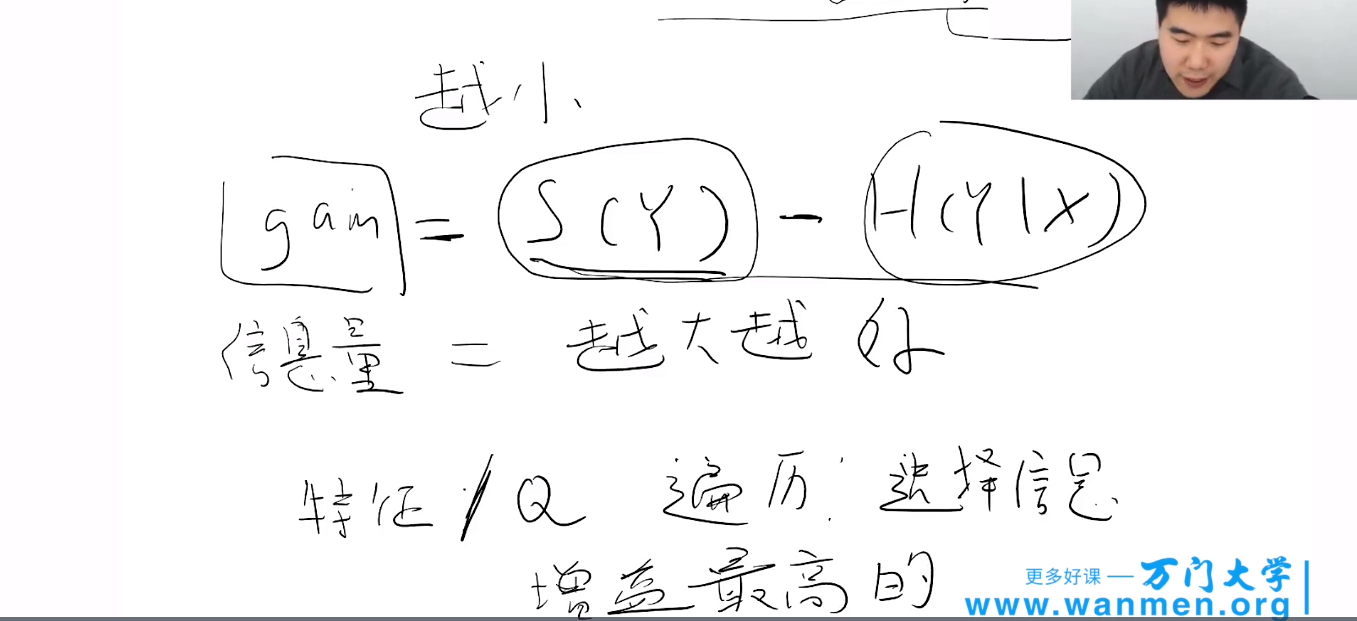 越小、
gain = S(Y) - H(Y|X)
信息量 = 越大越好
特征/Q 遍历：选择信息
增益最高的
更多好课 — 万门大学
www.wanmen.org